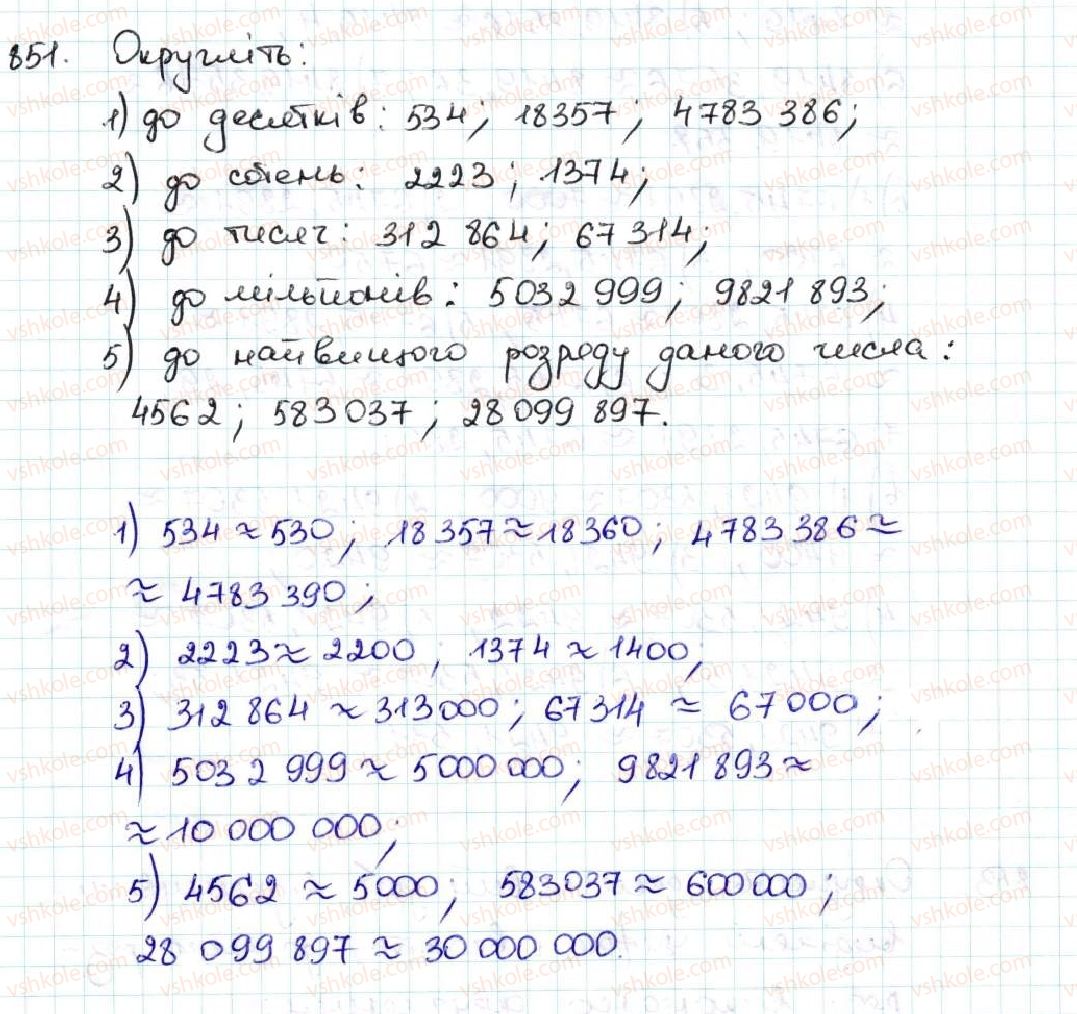 851. Округліть:
1) до десятків: 534; 18357; 4783 386;
2) до сотень: 2223; 1374;
3) до тисяч: 312 864; 67 314;
4) до мільйонів: 5032 999; 9821 893;
5) до найвищого розряду даного числа:
4562; 583 037; 28 099 897.
1) 534 ≈ 530; 18 357 ≈ 18 360; 4783 386 ≈
≈ 4783 390;
2) 2223 ≈ 2200; 1374 ≈ 1400;
3) 312 864 ≈ 313 000; 67 314 ≈ 67 000;
4) 5032 999 ≈ 5000 000; 9821 893 ≈
≈ 10 000 000;
5) 4562 ≈ 5000; 583037 ≈ 600 000;
28 099 897 ≈ 30 000 000.